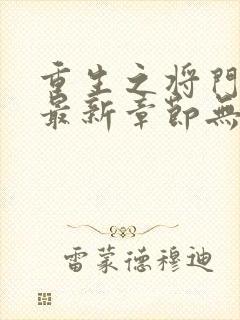 重生之将门
最新章节无
雷蒙德穆迪